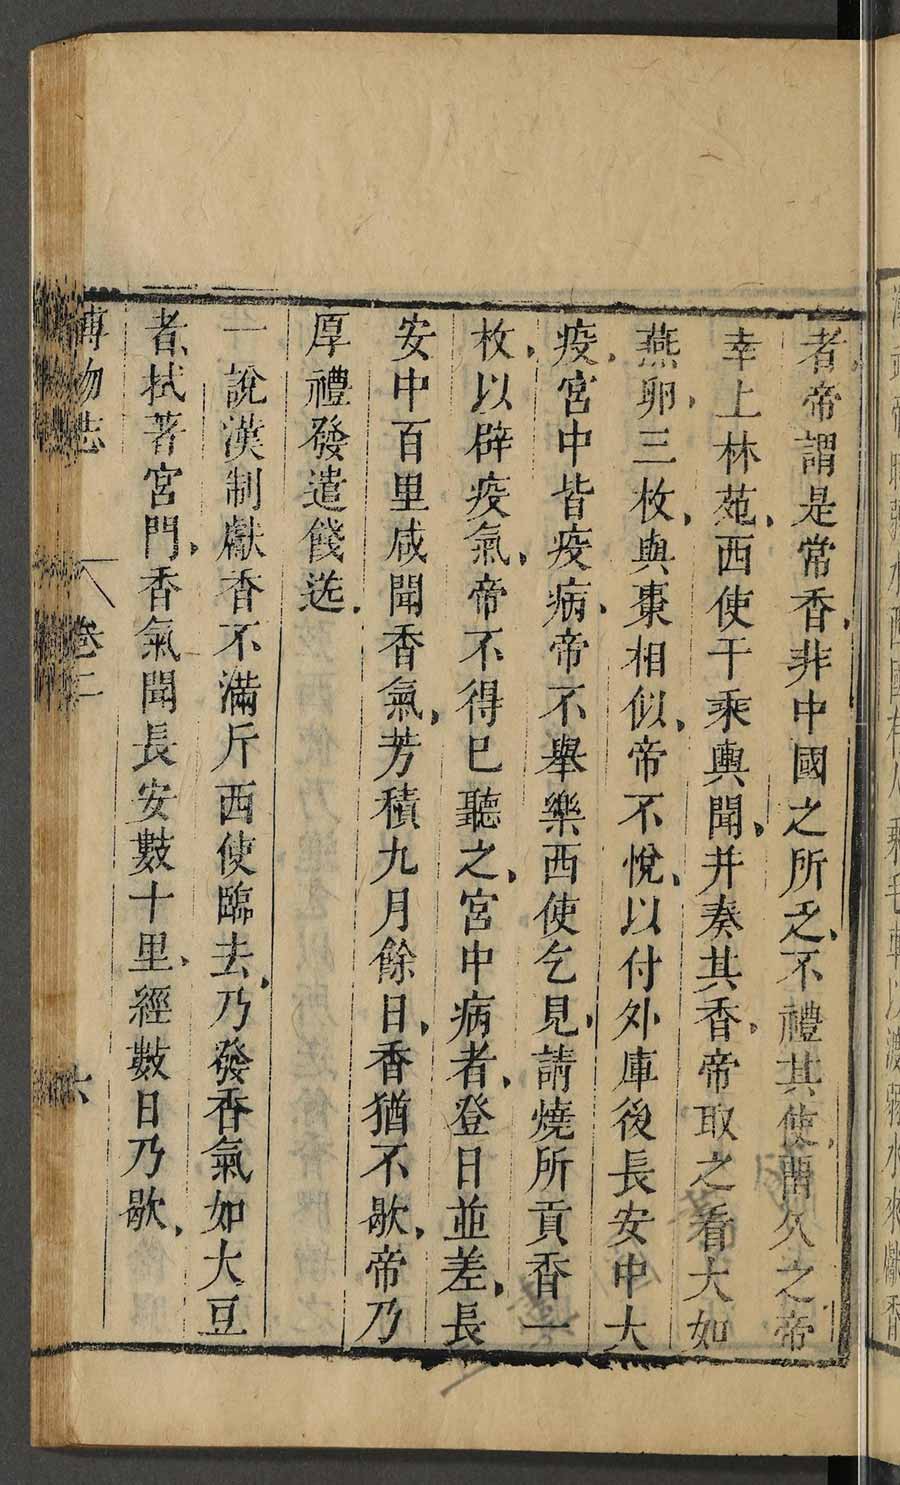 漢武帝時弱水西國有人乘毛車以渡弱水來獻香
者帝謂是常香非中國之所乏不禮其使留久之帝
幸上林苑西使干乘輿聞并奏其香帝取之看大如
燕卵三枚與棗相似帝不悅以付外庫後長安中大
疫宮中皆疫病帝不舉樂西使乞見請燒所貢香一
枚以辟疫氣帝不得已聽之宮中病者登日並差長
安中百里咸聞香氣芳積九月餘日香猶不歇帝乃
厚禮發遣餞送
一說漢制獻香不滿斤西使臨去乃發香氣如大豆
者拭著宮門香氣聞長安數十里經數日乃歇
博物志 卷二 六